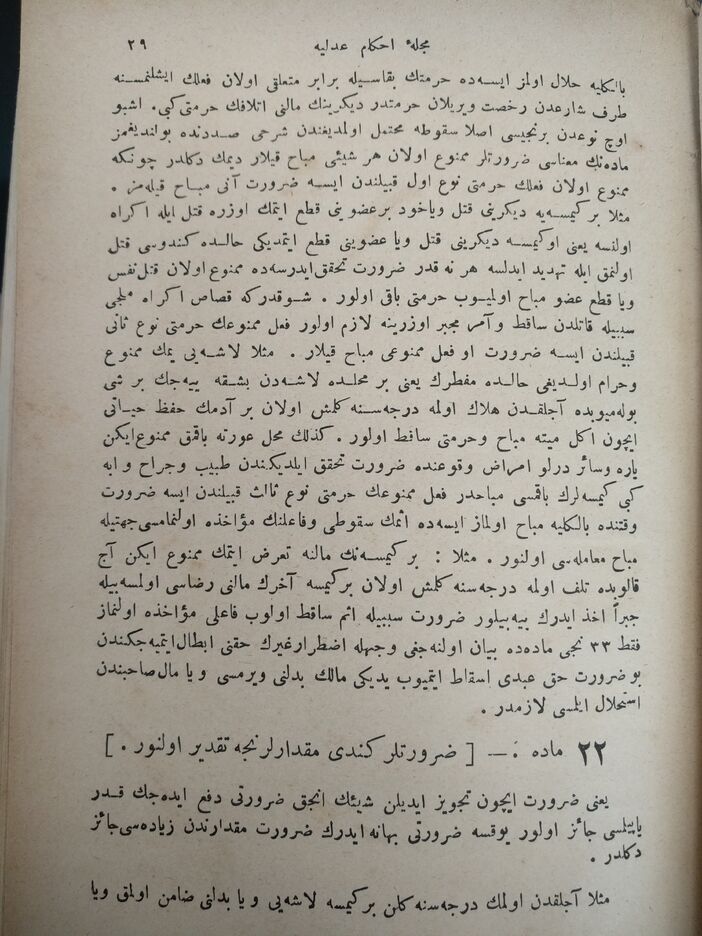 مجلهٔ احكام عدليه ٢٩
بالكليه حلال اولمز ايسه‌ده حرمتك بقاسيله برابر متعلقى اولان فعلك ايشلنمسنه
طرف شارعدن رخصت ويريلان حرمتدر ديكرينك مالنى اتلافك حرمتى كبى. اشبو
اوچ نوعدن برنجيسى اصلا سقوطه محتمل اولمديغندن شرحى صددنده بولنديغمز
ماده‌نك معناسى ضرورتلر ممنوع اولان هر شيئى مباح قيلار ديمك دكلدر چونكه
ممنوع اولان فعلك حرمتى نوع اول قبيلندن ايسه ضرورت آنى مباح قيله‌مز .
مثلا بر كيمسه‌يه ديكرينى قتل وياخود بر عضوينى قطع ايتمك اوزره قتل ايله اكراه
اولنسه يعنى اوكيمسه ديكرينى قتل ويا عضوينى قطع ايتمديكى حالده كندوسى قتل
اولنمق ايله تهديد ايدلسه هر نه قدر ضرورت تحقق ايدرسه‌ده ممنوع اولان قتل نفس
ويا قطع عضو مباح اولميوب حرمتى باقى اولور . شوقدركه قصاص اكراه ملجى
سببيله قاتلدن ساقط وآمر مجبر اوزرينه لازم اولور فعل ممنوعك حرمتى نوع ثانى
قبيلندن ايسه ضرورت او فعل ممنوعى مباح قيلار . مثلا لاشه‌يى يمك ممنوع
وحرام اولديغى حالده مفطرك يعنى بر محلده لاشه‌دن بشقه ييه‌جك بر شى
بوله‌ميوبده آجلقدن هلاك اولمه درجه‌سنه كلمش اولان بر آدمك حفظ حياتى
ايچون اكل ميته مباح وحرمتى ساقط اولور . كذلك محل عورته باقمق ممنوع ايكن
ياره وسائر درلو امراض وقوعنده ضرورت تحقق ايلديكندن طبيب وجراح و ابه
كبى كيمسه‌لرك باقمسى مباحدر فعل ممنوعك حرمتى نوع ثالث قبيلندن ايسه ضرورت
وقتنده بالكليه مباح اولماز ايسه‌ده اثمك سقوطى وفاعلنك مؤاخذه اولنمامسى جهتيله
مباح معامله‌سى اولنور . مثلا : بر كيمسه‌نك مالنه تعرض ايتمك ممنوع ايكن آج
قالوبده تلف اولمه درجه‌سنه كلمش اولان بركيمسه آخرك مالنى رضاسى اولمسه‌بيله
جبراً اخذ ايدرك ييه‌بيلور ضرورت سببيله اثم ساقط اولوب فاعلى مؤاخذه اولنماز
فقط ٣٣ نجى ماده‌ده بيان اولنه‌جغى وجهله اضطرار غيرك حقنى ابطال ايتميه‌جكندن
بو ضرورت حق عبدى اسقاط ايتميوب يديكى مالك بدلنى ويرمسى و يا مال صاحبندن
استحلال ايلمسى لازمدر .
٢٢ ماده :ـ [ ضرورتلر كندى مقدارلرنجه تقدير اولنور . ]
يعنى ضرورت ايچون تجويز ايديلن شيئك انجق ضرورتى دفع ايده‌جك قدر
ياپيلمسى جائز اولور يوقسه ضرورتى بهانه ايدرك ضرورت مقدارندن زياده‌سى جائز
دكلدر .
مثلا آجلقدن اولمك درجه‌سنه كلن بر كيمسه لاشه‌يى و يا بدلنى ضامن اولمق ويا